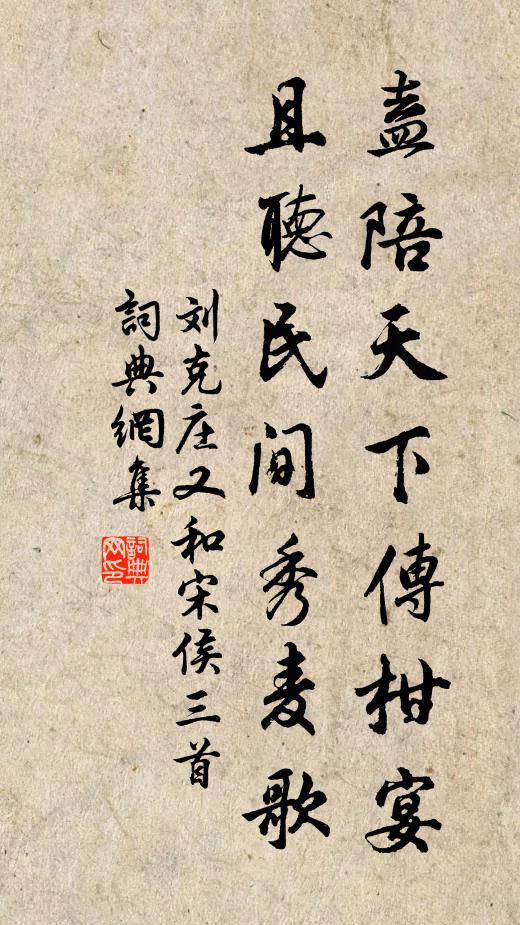 盍陪天下傳柑宴
且聽民間秀麦歌
刘克庄又和宋侯三首
詞典網集
詞典
网印